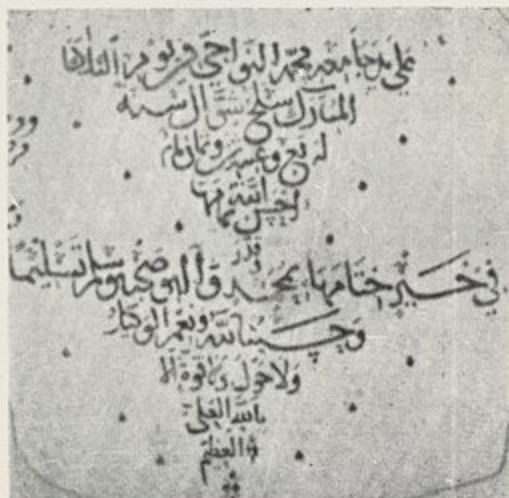 على يد جامعه محمد النواجي في يوم الثلاثا
المبارك سلخ شوال سنه
اربع وعشرين وثمان
احسن الله
وقدر
في خير اختامها بمحمد وآله وصحبه وسلم تسليما
وحسبنا الله ونعم الوكيل
ولا حول ولا قوة الا
بالله العلي
العظيم